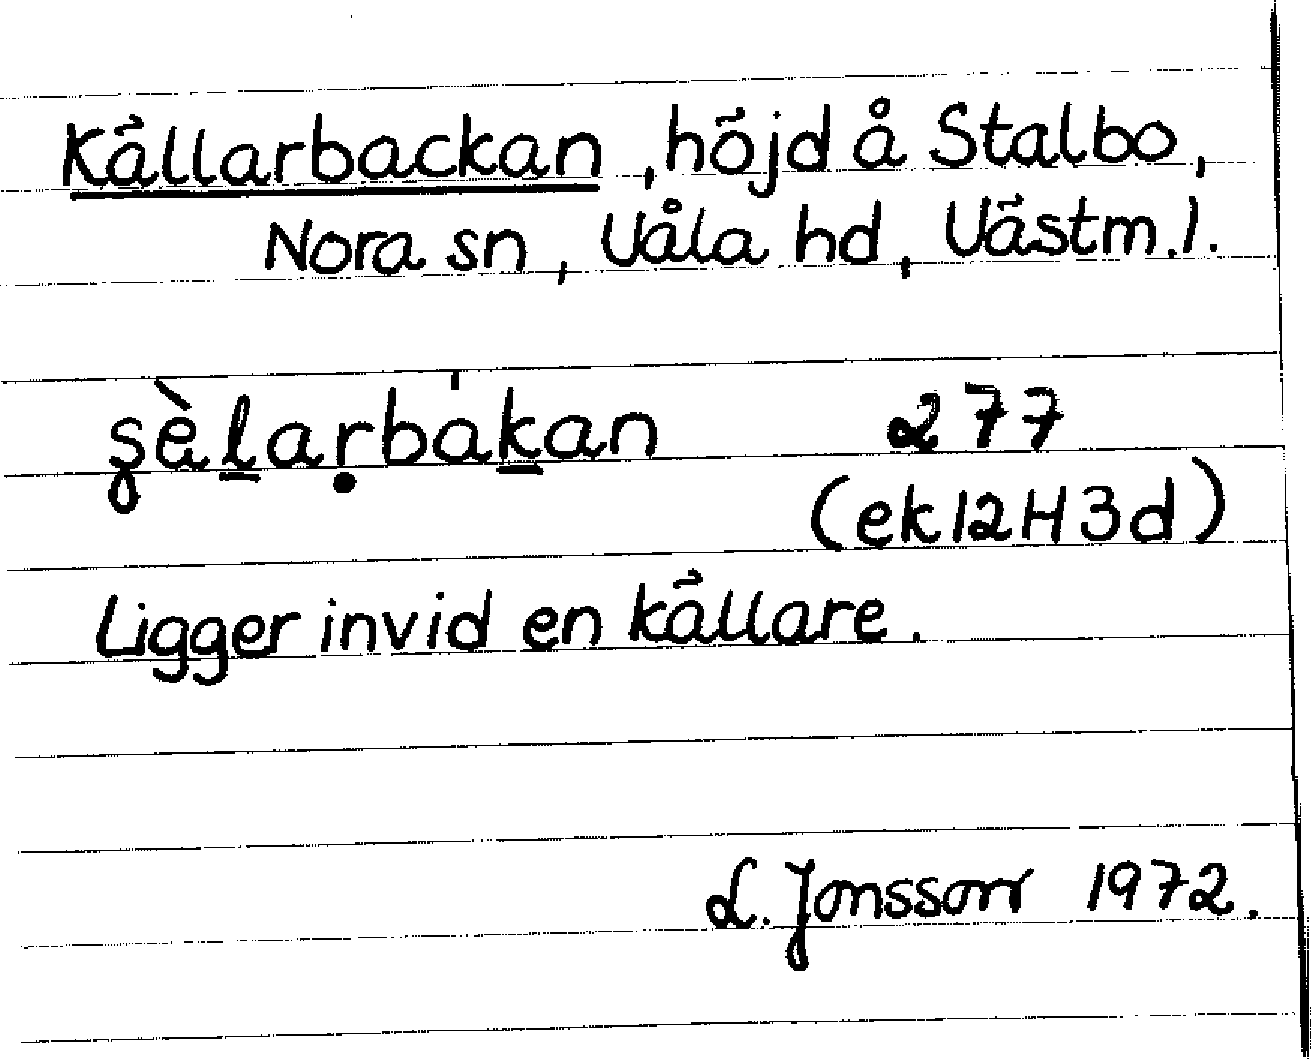 Källarbackan, höjd å Stalbo,
Nora sn, Våla hd, Västm. l.
şèl̲aṛbàk̲an 277
(ek 12H3d)
Ligger invid en källare.
L. Jonsson 1972.